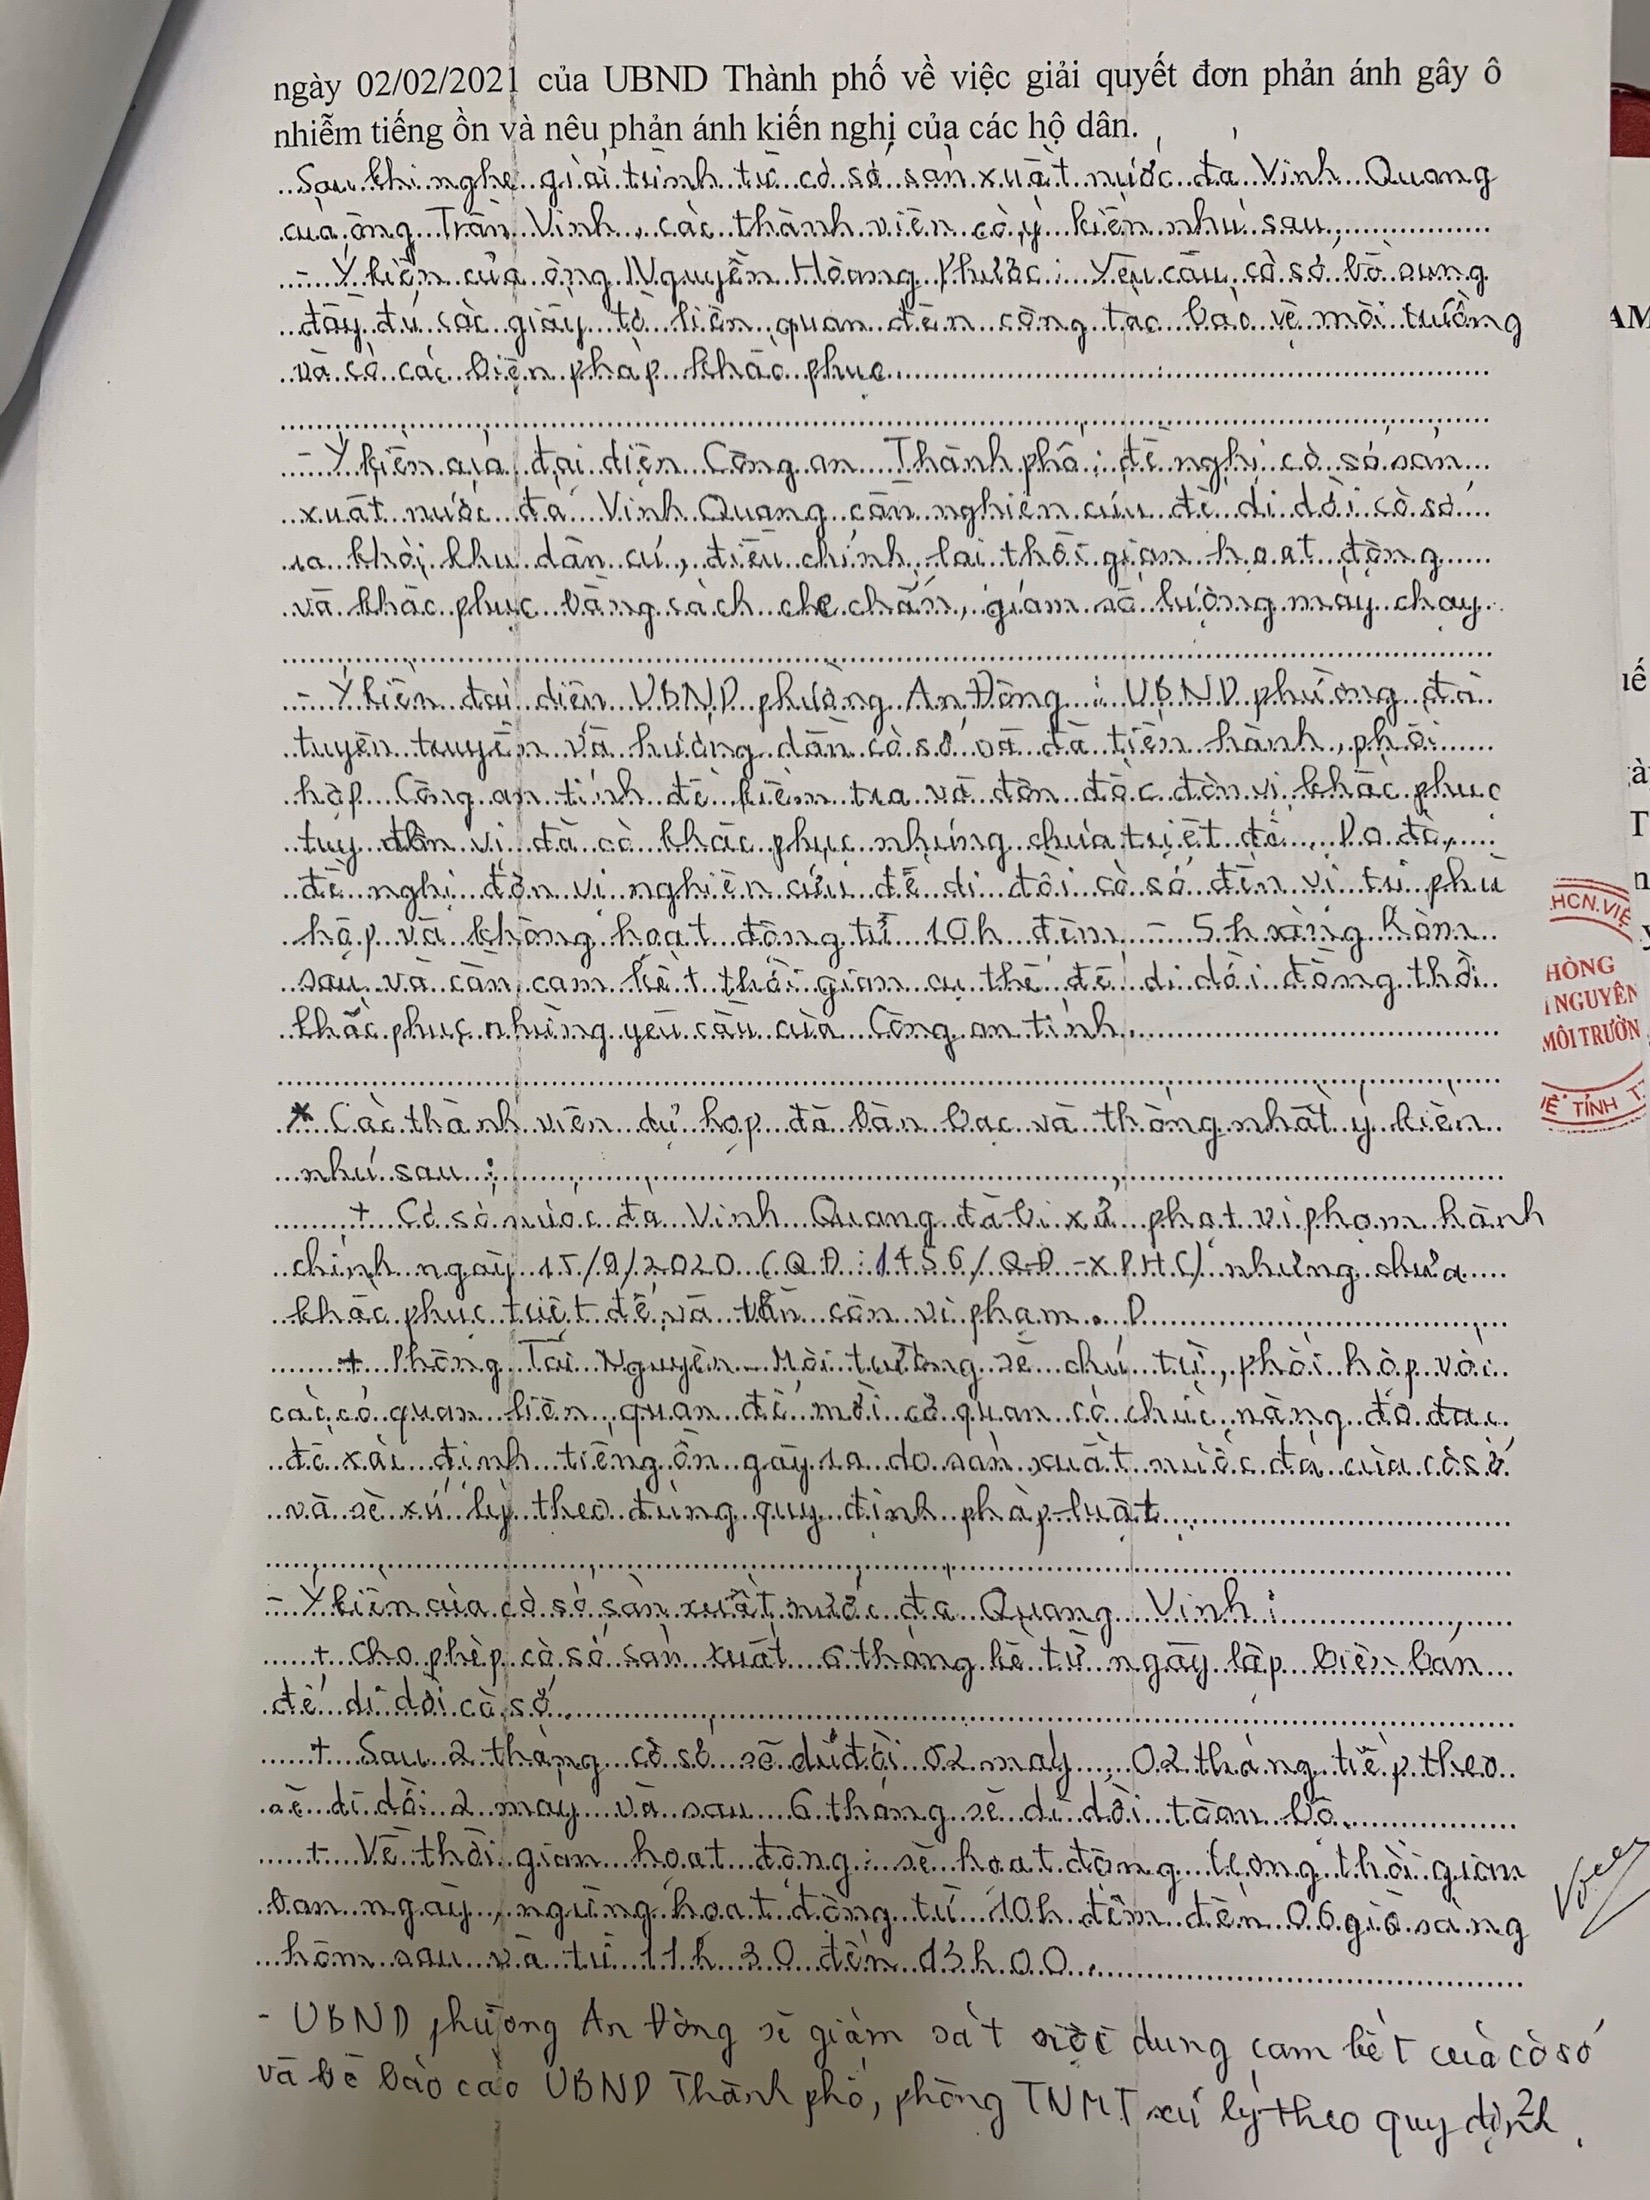 ngày 02/02/2021 của UBND Thành phố về việc giải quyết đơn phản ánh gây ô
nhiễm tiếng ồn và nêu phản ánh kiến nghị của các hộ dân.
Sau khi nghe giải trình từ cơ sở sản xuất nước đá Vinh Quang
của ông Trần Vinh, các thành viên có ý kiến như sau:
- Ý kiến của ông Nguyễn Hoàng Phước: Yêu cầu cơ sở bổ sung
đầy đủ các giấy tờ liên quan đến công tác bảo vệ môi trường
và có các biện pháp khắc phục
- Ý kiến của đại diện Công an Thành phố: đề nghị cơ sở sản
xuất nước đá Vinh Quang cần nghiên cứu để di dời cơ sở
ra khỏi khu dân cư, điều chỉnh lại thời gian hoạt động
và khắc phục bằng cách che chắn, giảm số lượng máy chạy.
- Ý kiến đại diện UBND phường An Đông: UBND phường đã
tuyên truyền và hướng dẫn cơ sở và đã tiến hành, phối
hợp Công an tỉnh để kiểm tra và đôn đốc đơn vị khắc phục
tuy đơn vị đã có khắc phục nhưng chưa triệt để. Do đó,
đề nghị đơn vị nghiên cứu để di dời cơ sở đến vị trí phù
hợp và không hoạt động từ 10h đêm - 5h sáng hôm
sau và cần cam kết thời gian cụ thể để di dời đồng thời
khắc phục những yêu cầu của Công an tỉnh.
* Các thành viên dự họp đã bàn bạc và thống nhất ý kiến
như sau:
+ Cơ sở nước đá Vinh Quang đã bị xử phạt vi phạm hành
chính ngày 15/9/2020 (QĐ: 1456/QĐ-XPHC) nhưng chưa
khắc phục triệt để và vẫn còn vi phạm.
+ Phòng Tài Nguyên - Môi trường sẽ chủ trì, phối hợp với
các cơ quan liên quan để mời cơ quan có chức năng đo đạc
để xác định tiếng ồn gây ra do sản xuất nước đá của cơ sở
và sẽ xử lý theo đúng quy định pháp luật
- Ý kiến của cơ sở sản xuất nước đá Quang Vinh:
+ Cho phép cơ sở sản xuất 6 tháng kể từ ngày lập biên bản
để di dời cơ sở
+ Sau 2 tháng cơ sở sẽ di dời 02 máy, 02 tháng tiếp theo
sẽ di dời 2 máy và sau 6 tháng sẽ di dời toàn bộ.
+ Về thời gian hoạt động: sẽ hoạt động trong thời gian
ban ngày, ngừng hoạt động từ 10h đêm đến 06 giờ sáng
hôm sau và từ 11h30 đến 13h00.
- UBND phường An Đông sẽ giám sát nội dung cam kết của cơ sở
và sẽ báo cáo UBND Thành phố, phòng TNMT xử lý theo quy định.
2
HCN.VIỆ
HÒNG
NGUYÊN
MÔI TRƯỜN
TỈNH T.